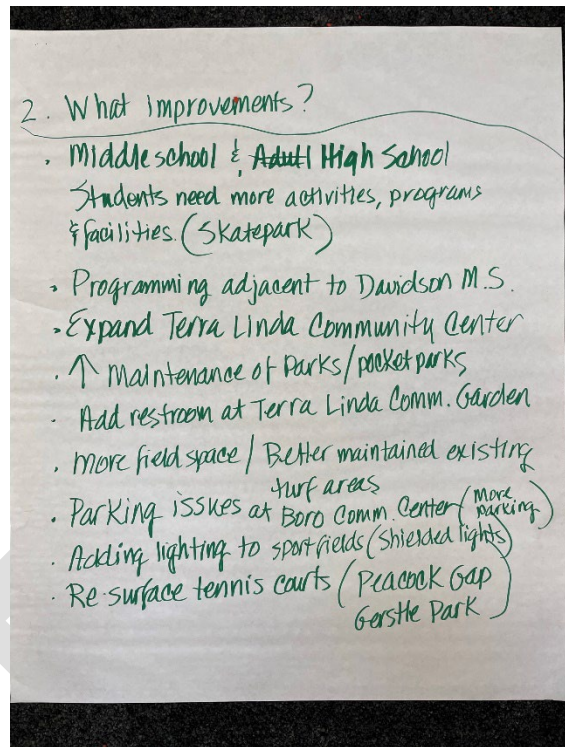 2. What improvements?
• Middle school & Adult High School
Students need more activities, programs
& facilities. (Skatepark)
• Programming adjacent to Davidson M.S.
• Expand Terra Linda Community Center
• ↑ Maintenance of Parks/pocket parks
• Add restroom at Terra Linda Comm. Garden
• More field space / Better maintained existing
turf areas
• Parking issues at Boro Comm. Center (More
parking)
• Adding lighting to sportfields (Shielded lights)
• Re-surface tennis courts (Peacock Gap
Gerstle Park)